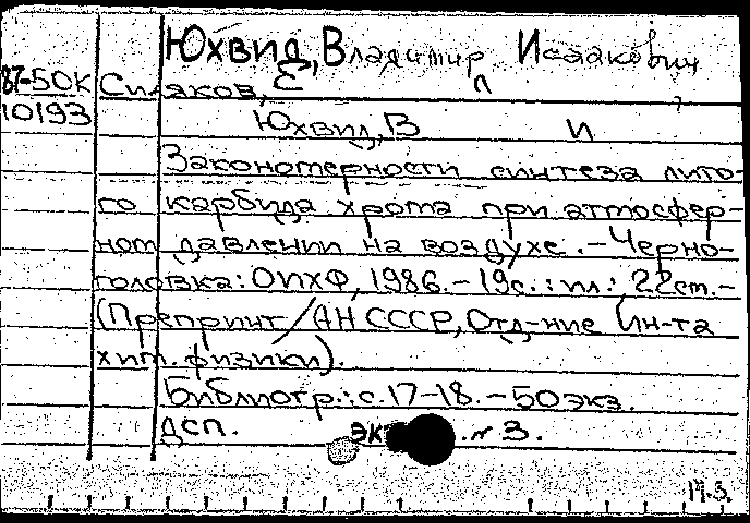 Юхвид, Владимир Исаакович
87-50К Силяков, Е П
10193 Юхвид, В И
Закономерности синтеза лито-
го карбида хрома при атмосфер-
ном давлении на воздухе. - Черно-
головка: ОИХФ, 1986. - 19с.: ил.; 22см. -
(Препринт / АН СССР, Отд-ние Ин-та
хим. физики).
Библиогр.: с. 17-18. - 50 экз.
ДСП. экз. N 3.